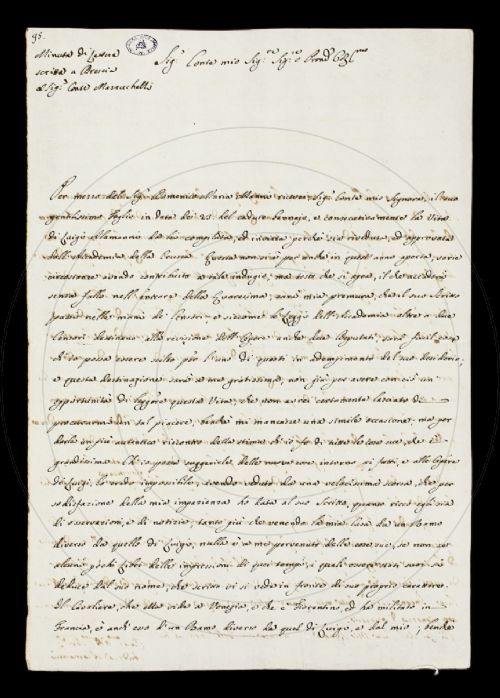 95.
Minuta di Lettera
scritta a Brescia
al Sig.r Conte Mazzuchelli
Sig.r Conte mio Sig.re Sig.re e Pron.
Per mezzo del Sig.r Domenico Maria Manni ricevei, Sig.r Conte mio Signore, il suo
gentilissimo foglio in data dei 25. del caduto Gennajo, e consecutivamente la Vita
di Luigi Alamanni da lei compilata, ed inviata perchè sia riveduta, ed approvata
dall'Accademia della Crusca. Questa non si è per anche in quest'anno aperta, varie
circostanze avendo contribuito a tale indugio, ma tosto che si apra, il che accaderà
senza fallo nell'entrare della Quaresima, sarà mia premura, che il suo Scritto
passi nelle mani de' Censori, e siccome le Leggi dell'Accademia oltre a due
Censori destinano alla revisione dell'Opere anche due Deputati, sarà facil cosa
ch'io possa essere scelto per l'uno di questi in adempimento del suo desiderio,
e questa destinazione sarà a me gratissima, non già per avere con ciò un
opportunità di leggere questa Vita, che non avrei certamente lasciato di
procurarmi un tal piacere, benchè mi mancasse una simile occasione, ma per
darle un più autentico riscontro della stima ch'io fo di tutte le cose sue, che è
grandissima. Ch'io possa suggerirle delle nuove cose intorno ai fatti, e alle Opere
di Luigi, lo credo impossibile, avendo veduto da una velocissima scorsa, che per
sodisfazione della mia impazienza ho data al suo Scritto, quanto ricco egli sia
di osservazioni, e di notizie, tanto più che venendo la mia Casa da un Ramo
diverso da quello di Luigi, nulla è a me pervenuto delle cose sue, se non se
alcuni pochi Libri delle impressioni di quei tempi, i quali essere stati suoi si
deduce dal suo nome, che scritto vi si vede in fronte di suo proprio carattere.
Il Cavaliere, che ella vide a Venezia, e che è Fiorentino, ed ha militato in
Francia, è anch'esso d'un Ramo diverso da quel di Luigi, e dal mio; benchè